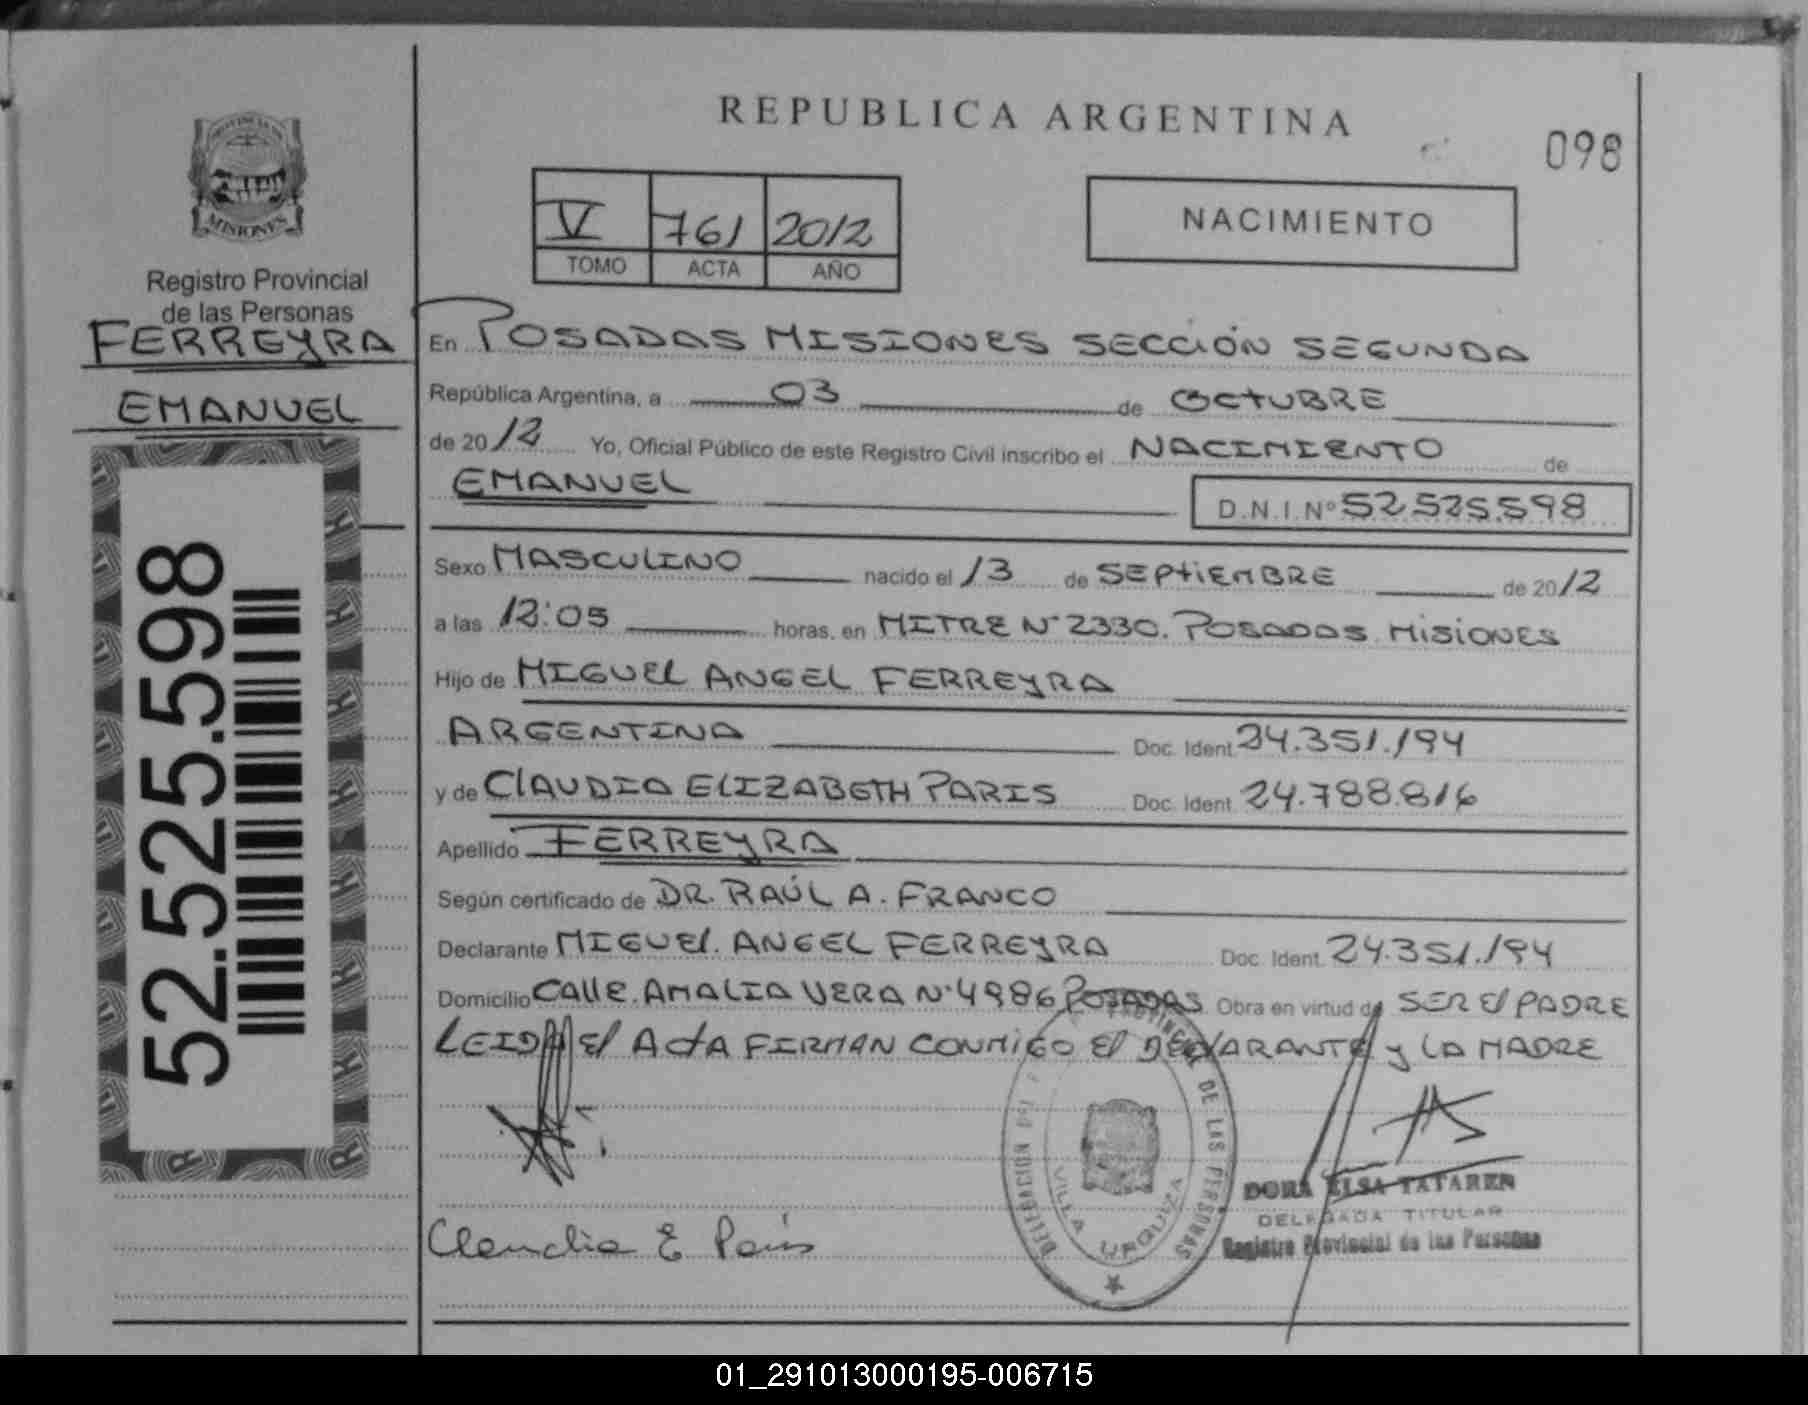 REPUBLICA ARGENTINA
098
PROVINCIA DE
MISIONES
Registro Provincial
de las Personas
FERREYRA
EMANUEL
52.525.598
V 761 2012
TOMO ACTA AÑO
NACIMIENTO
En POSADAS MISIONES SECCIÓN SEGUNDA
República Argentina, a 03 de OCTUBRE
de 2012 Yo, Oficial Público de este Registro Civil inscribo el NACIMIENTO de
EMANUEL D.N.I.Nº 52.525.598
Sexo MASCULINO nacido el 13 de SEPTIEMBRE de 2012
a las 12:05 horas, en MITRE Nº 2330. POSADAS. MISIONES
Hijo de MIGUEL ANGEL FERREYRA
ARGENTINA Doc. Ident. 24.351.194
y de CLAUDIA ELIZABETH PARIS Doc. Ident. 24.788.816
Apellido FERREYRA
Según certificado de DR. RAÚL A. FRANCO
Declarante MIGUEL ANGEL FERREYRA Doc. Ident. 24.351.194
Domicilio CALLE AMALIA VERA Nº 4986 POSADAS Obra en virtud de SER El PADRE
LEIDA El ACTA FIRMAN CONMIGO El DECLARANTE y LA MADRE
DELEGACION PROVINCIAL DE LAS PERSONAS
VILLA URQUIZA
DORA ELSA TATAREN
DELEGADA TITULAR
Registro Provincial de las Personas
Claudia E Paris
01_291013000195-006715